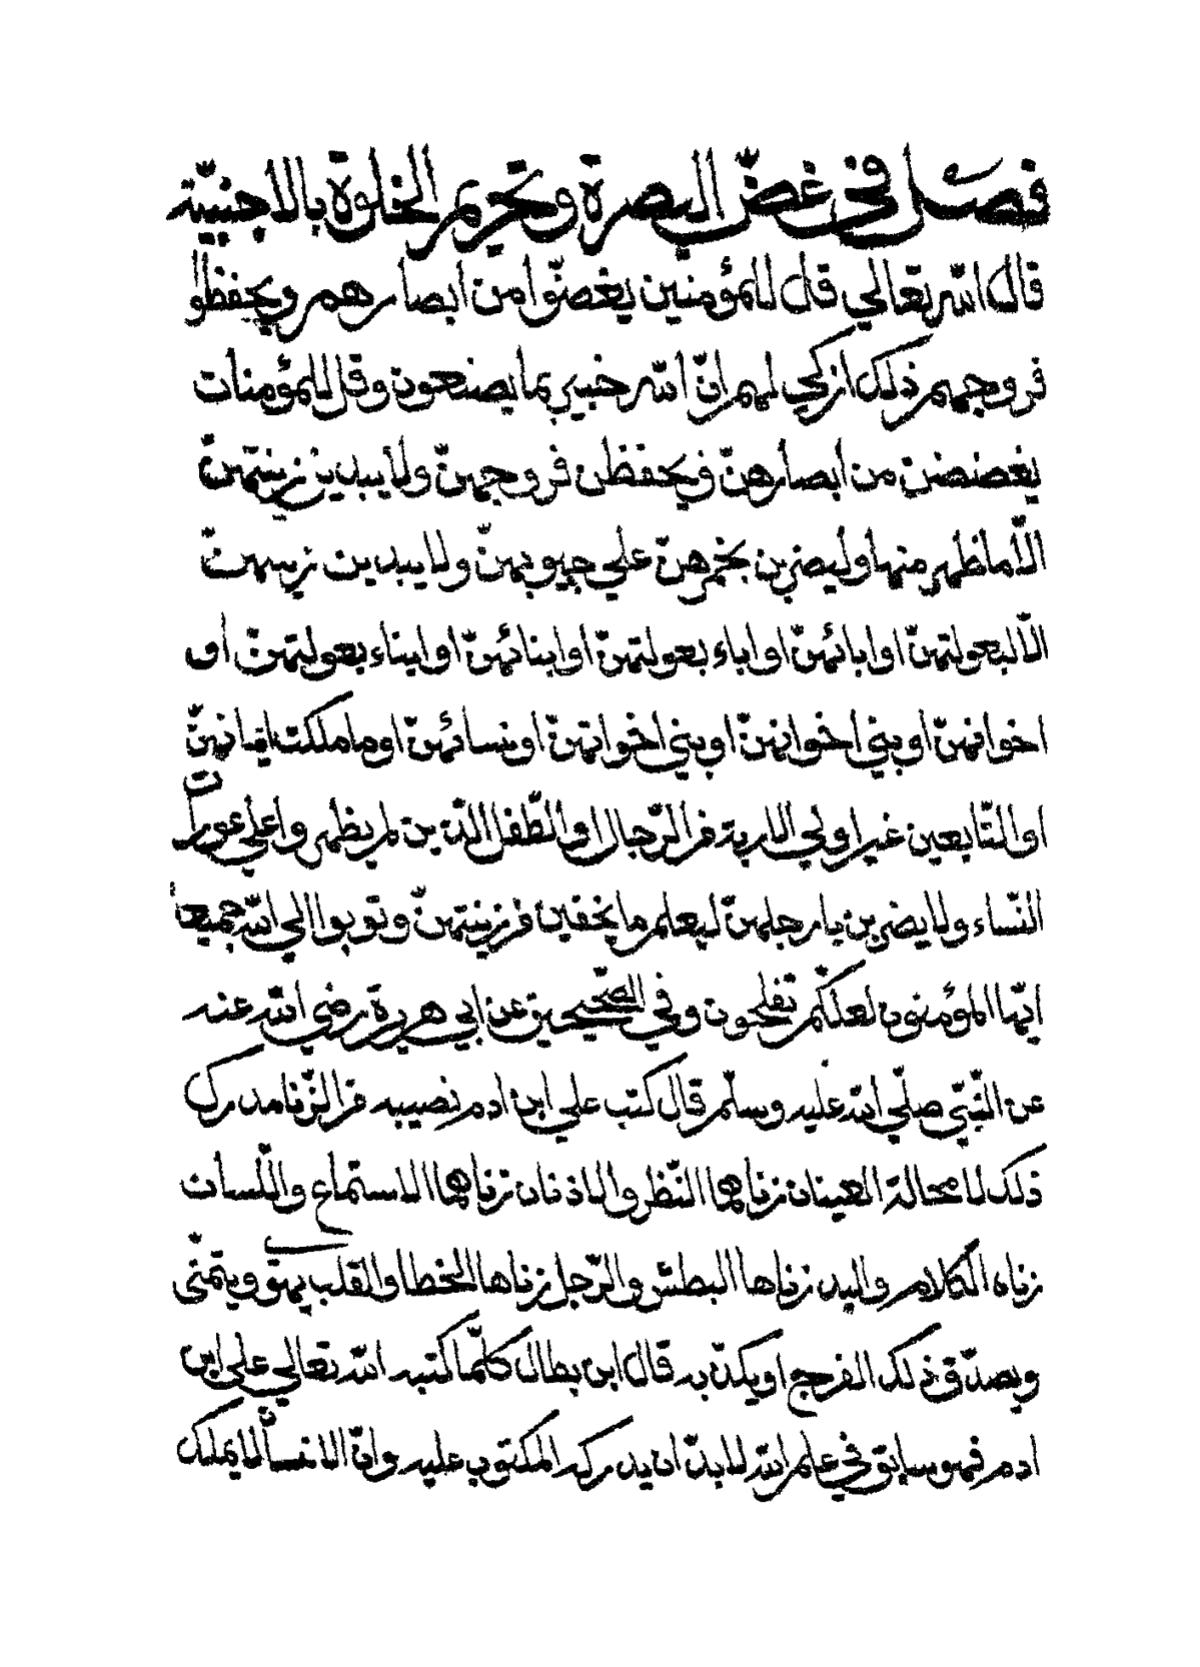 فصل في غضّ البصرة وتحريم الخلوة بالاجنبيّة
قال الله تعالي قل للمؤمنين يغضّوا من ابصارهم ويحفظوا
فروجهم ذلك ازكي لهم انّ الله خبير بما يصنعون وقل للمؤمنات
يغضضن من ابصارهنّ ويحفظن فروجهنّ ولا يبدين زينتهنّ
الّا ما ظهر منها وليضربن بخمرهنّ علي جيوبهنّ ولا يبدين زينتهنّ
الّا لبعولتهنّ او ابائهنّ او اباء بعولتهنّ او ابنائهنّ او ابناء بعولتهنّ او
اخوانهنّ او بني اخوانهنّ او بني اخواتهنّ او نسائهنّ او ما ملكت ايمانهنّ
او التّابعين غير اولي الاربة من الرّجال او الطّفل الّذين لم يظهروا علي عورات
النّساء ولا يضربن بارجلهنّ ليعلم ما يخفين من زينتهنّ وتوبوا الي الله جميعا
ايّها المؤمنون لعلّكم تفلحون وفي الصّحيحين عن ابي هريرة رضي الله عنه
عن النّبيّ صلّي الله عليه وسلّم قال كتب علي ابن ادم نصيبه من الزّنا مدرك
ذلك لا محالة العينان زناهما النّظر والاذنان زناهما الاستماع واللّسان
زناه الكلام واليد زناها البطش والرّجل زناها الخطا والقلب يهوي ويتمنّي
ويصدّق ذلك الفرج او يكذّبه قال ابن بطال كلّما كتبه الله تعالي علي ابن
ادم فهو سابق في علم الله لا بدّ ان يدركه المكتوب عليه وانّ الانسان لا يملك